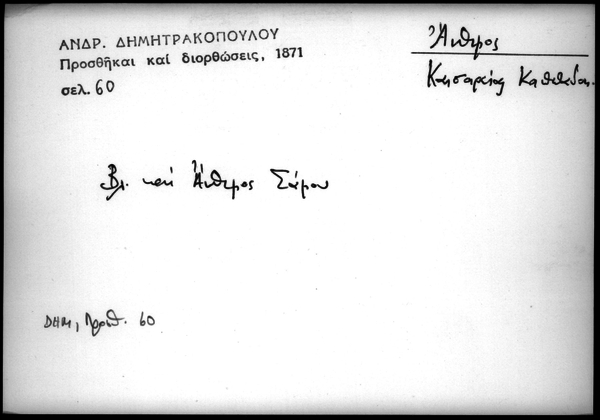 ΑΝΔΡ. ΔΗΜΗΤΡΑΚΟΠΟΥΛΟΥ
Προσθῆκαι καί διορθώσεις, 1871
σελ. 60
Ἄνθιμος
Καισαρείας
Βλ. καί Ἄνθιμος Σάμου
ΔΗΜ, Προσθ. 60